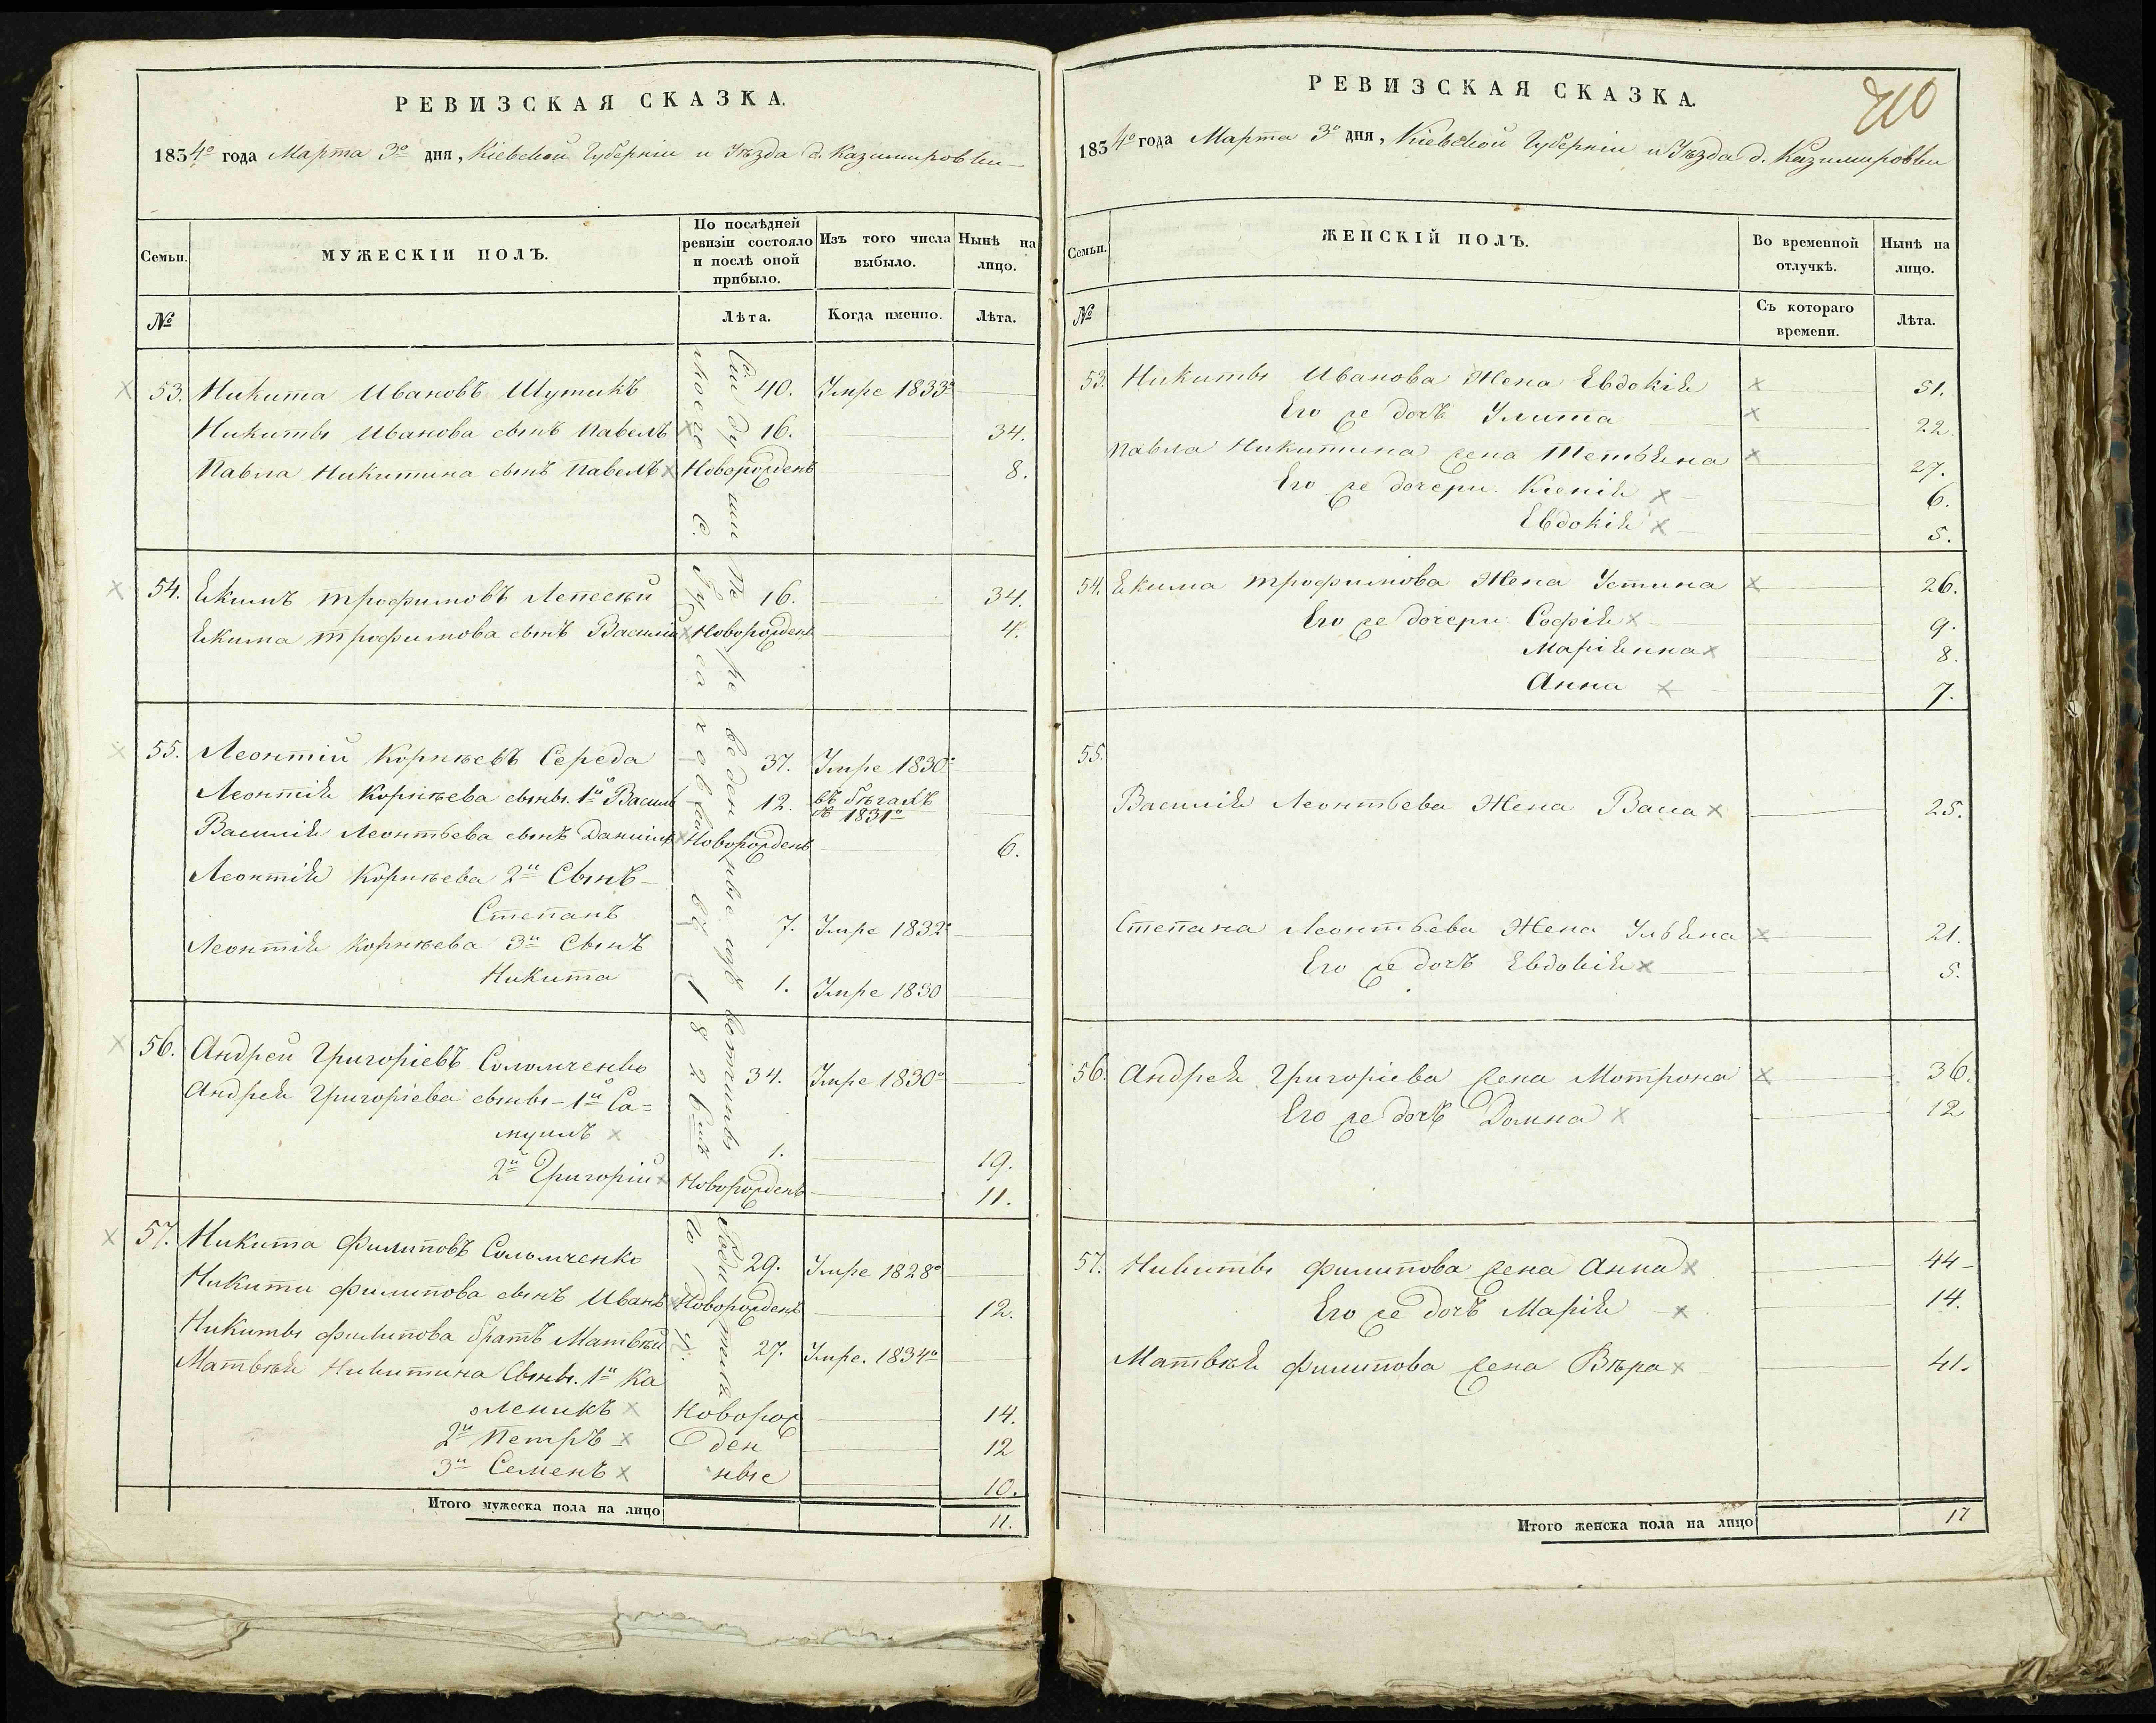 РЕВИЗСКАЯ СКАЗКА.
1834го года Марта 3го дня, Кіевской Губерніи и Уѣзда д. Казимировки
Семьи.
МУЖЕСКІЙ ПОЛЪ.
По послѣдней ревизіи состояло и послѣ оной прибыло.
Изъ того числа выбыло.
Нынѣ на лицо.
№
Лѣта.
Когда именно.
Лѣта.
53. Никита Ивановъ Шутикъ 40. Умре 1833го
Никиты Иванова сынъ Павелъ 16. 34.
Павла Никитина сынъ Павелъ Новорожденъ 8.
54. Екимъ Трофимовъ 16. 34.
Екима Трофимова сынъ Василій Новорожденъ 4.
55. Леонтій Корнѣевъ Середа 37. Умре 1830го
Леонтія Корнѣева сынъ. 1й Василій 12. въ бѣгахъ съ 1831го
Василія Леонтьева сынъ Даниилъ Новорожденъ 6.
Леонтія Корнѣева 2й Сынъ
Степанъ 7. Умре 1832го
Леонтія Корнѣева 3й Сынъ
Никита 1. Умре 1830
56. Андрей Григоріевъ Соломченко 34. Умре 1830го
Андрея Григоріева сыны 1й Са=
муилъ 1. 19.
2й Григорій Новорожденъ 11.
57. Никита Филиповъ Соломченко 29. Умре 1828го
Никиты Филипова сынъ Иванъ Новорожденъ 12.
Никиты Филипова братъ Матвѣй 27. Умре. 1834го
Матвѣя Никитина Сыны. 1й Ка
леникъ Новорож 14.
2й Петръ ден 12
3й Семенъ ные 10.
Сіи души переведены изъ вотчины
1826го
Итого мужеска пола на лицо 11.
210
РЕВИЗСКАЯ СКАЗКА.
1834го года Марта 3го дня, Кіевской Губерніи и Уѣзда д. Казимировки
Семьи.
ЖЕНСКІЙ ПОЛЪ.
Во временной отлучкѣ.
Нынѣ на лицо.
№
Съ котораго времени.
Лѣта.
53. Никиты Иванова Жена Евдокія 51.
Его же дочь Улита 22.
Павла Никитина жена Тетьяна 27.
Его же дочери. Ксенія 6.
Евдокія 5.
54. Екима Трофимова Жена Устина 26.
Его же дочери Софія 9.
Маріянна 8.
Анна 7.
55.
Василія Леонтьева Жена Васа 25.
Степана Леонтьева Жена Ульяна 21.
Его же дочь Евдокія 5.
56. Андрея Григоріева жена Мотрона 36.
Его же дочь Домна 12
57. Никиты Филипова жена Анна 44
Его же дочь Марія 14.
Матвѣя Филипова жена Вѣра 41.
Итого женска пола на лицо 17